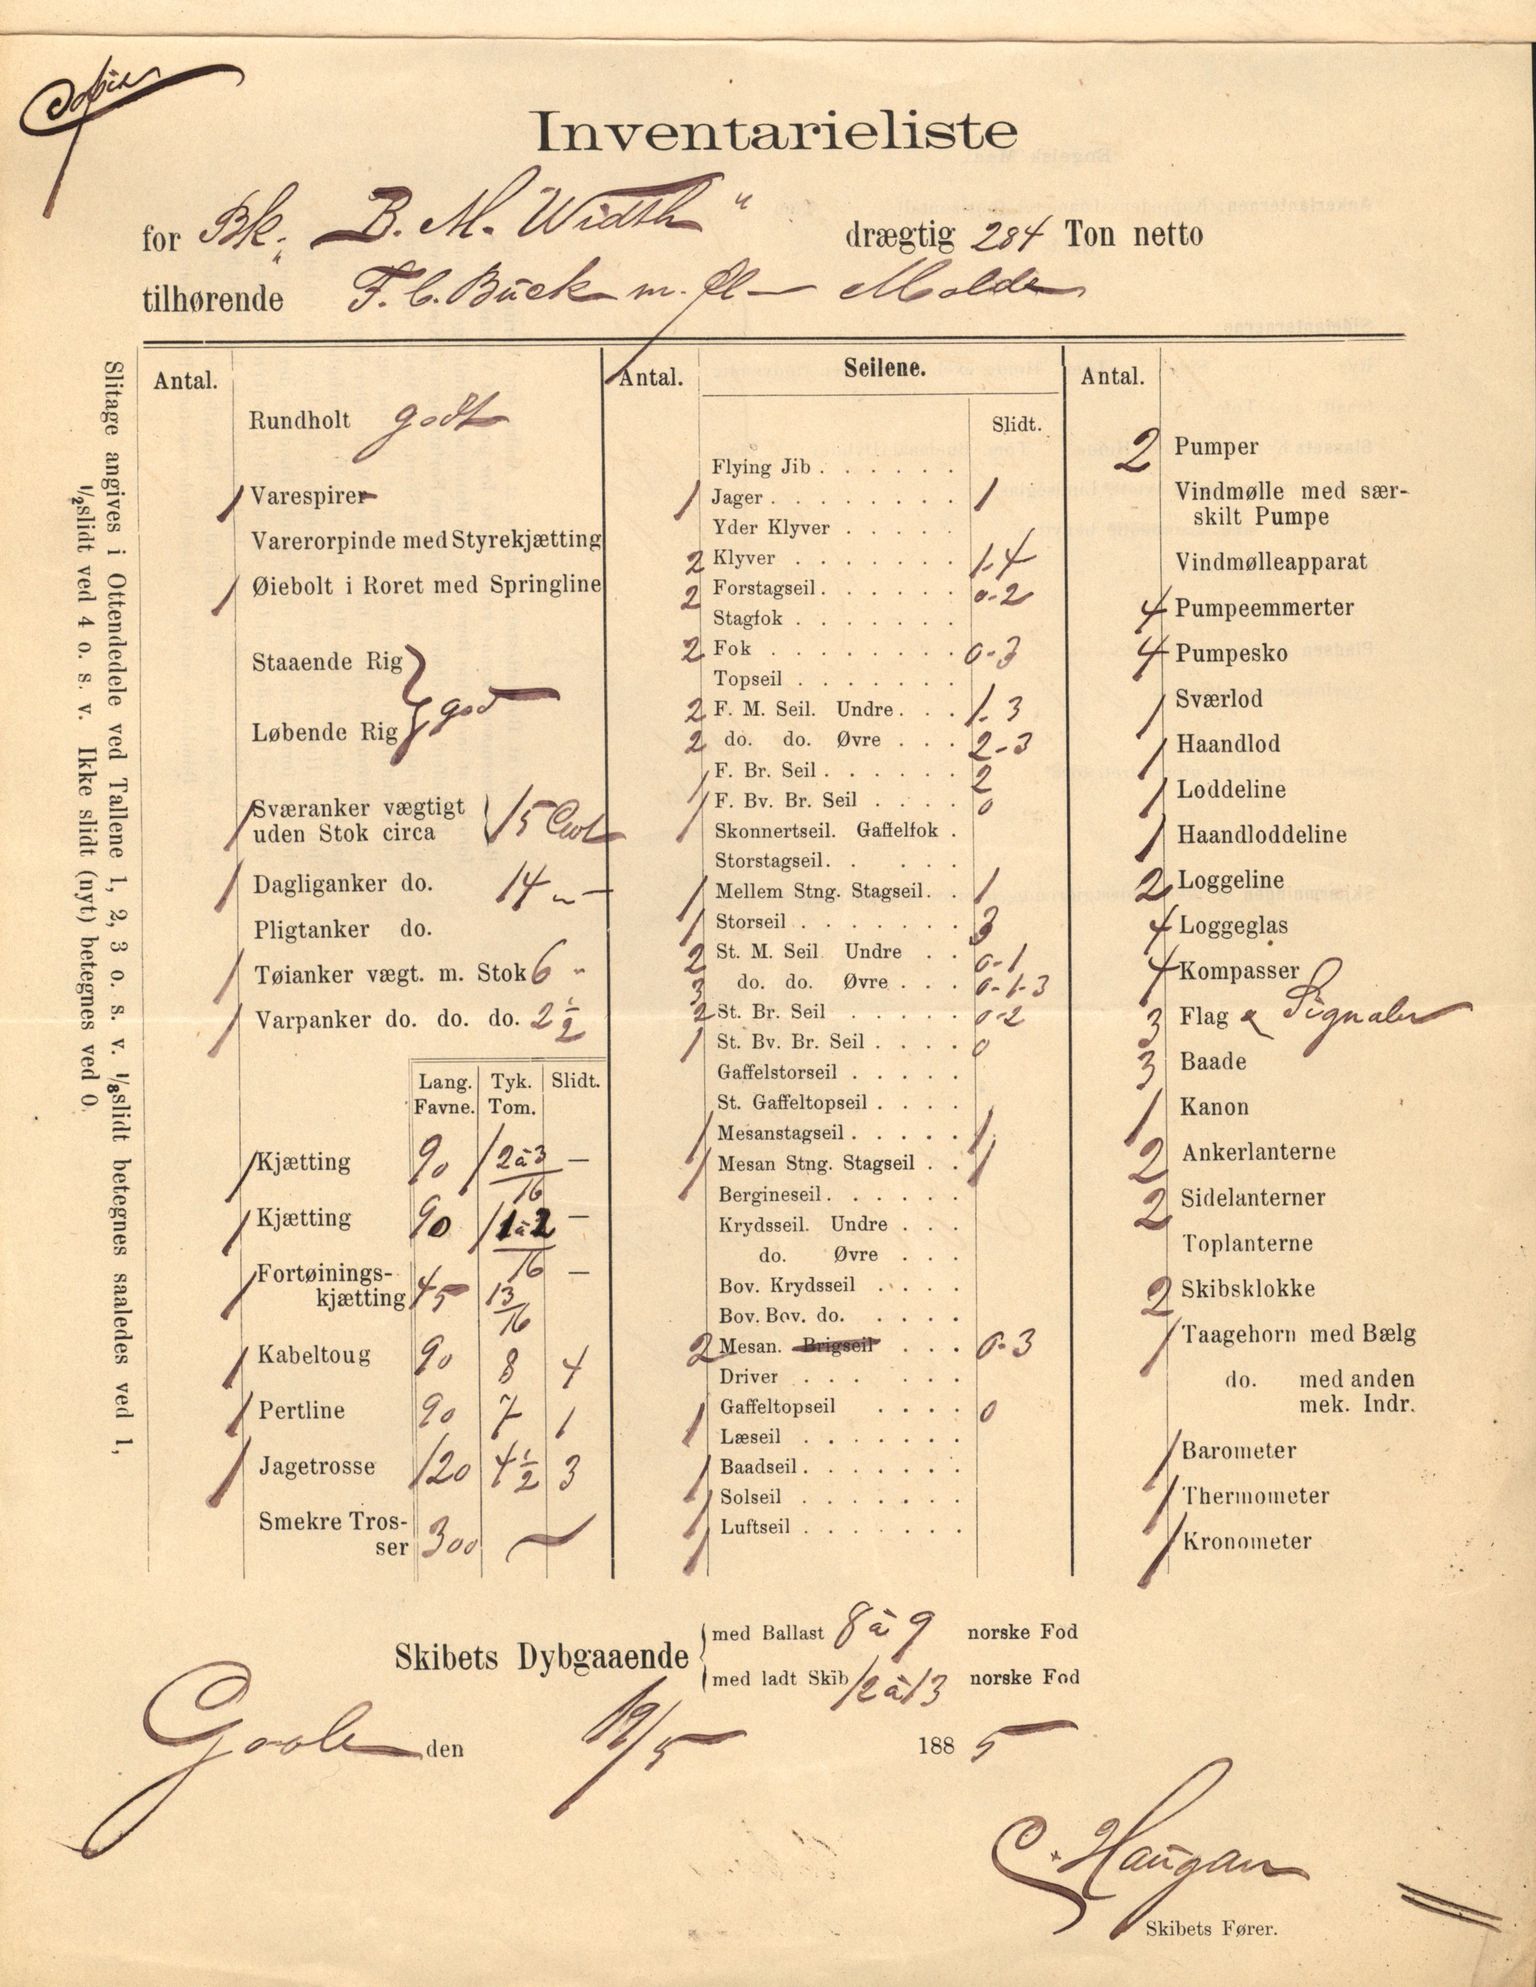 Inventarieliste
for Bk. „B. M. Width“ drægtig 284 Ton netto
tilhørende F. C. Bück m. fl — Molde
Slitage angives i Ottendedele ved Tallene 1, 2, 3 o. s. v. ⅛slidt betegnes saaledes ved 1,
½slidt ved 4 o. s. v. Ikke slidt (nyt) betegnes ved 0.
Antal.
Rundholt godt
1 Varespirer
Varerorpinde med Styrekjætting
1 Øiebolt i Roret med Springline
Staaende Rig
Løbende Rig } god
1 Sværanker vægtigt
uden Stok circa 15 Cwt
1 Dagliganker do. 14 „ —
Pligtanker do.
1 Tøianker vægt. m. Stok 6 „
1 Varpanker do. do. do. 2 ½
Lang. Tyk. Slidt.
Favne. Tom.
1 Kjætting 90 1 2 à 3/16 —
1 Kjætting 90 1 1 à 2/16 —
1 Fortøinings-
kjætting 45 13/16 —
1 Kabeltoug 90 8 4
1 Pertline 90 7 1
1 Jagetrosse 120 4 ½ 3
Smekre Tros-
ser 300 —
Antal. Seilene.
Slidt.
Flying Jib . . . . . .
1 Jager . . . . . . . . 1
Yder Klyver . . . . .
2 Klyver . . . . . . . 1-4
2 Forstagseil . . . . . . 0-2
Stagfok . . . . . . .
2 Fok . . . . . . . . 0-3
Topseil . . . . . . .
2 F. M. Seil. Undre . . . 1-3
2 do. do. Øvre . . . 2-3
1 F. Br. Seil . . . . . . 2
1 F. Bv. Br. Seil . . . . 0
Skonnertseil. Gaffelfok .
Storstagseil . . . . .
1 Mellem Stng. Stagseil . . 1
1 Storseil . . . . . . . 3
2 St. M. Seil Undre . . 0-1
3 do. do. Øvre . . . 0-1-3
2 St. Br. Seil . . . . . 0-2
1 St. Bv. Br. Seil . . . . 0
Gaffelstorseil . . . . .
St. Gaffeltopseil . . . .
1 Mesanstagseil . . . . . 1
1 Mesan Stng. Stagseil . . 1
Bergineseil . . . . . .
Krydsseil. Undre . . .
do. Øvre . . .
Bov. Krydsseil . . . .
Bov. Bov. do. . . . .
2 Mesan. Brigseil . . . 0-3
Driver . . . . . .
1 Gaffeltopseil . . . . 0
Læseil . . . . . . .
1 Baadseil . . . . . . .
1 Solseil . . . . . . .
1 Luftseil . . . . . . .
Antal.
2 Pumper
Vindmølle med sær-
skilt Pumpe
Vindmølleapparat
4 Pumpeemmerter
4 Pumpesko
1 Sværlod
1 Haandlod
1 Loddeline
1 Haandloddeline
2 Loggeline
4 Loggeglas
4 Kompasser
3 Flag & Signaler
3 Baade
1 Kanon
2 Ankerlanterne
2 Sidelanterner
Toplanterne
2 Skibsklokke
1 Taagehorn med Bælg
do. med anden
mek. Indr.
1 Barometer
1 Thermometer
1 Kronometer
Skibets Dybgaaende
med Ballast 8 à 9 norske Fod
med ladt Skib 12 à 13 norske Fod
Goole den 19/5 1885
C. Haugan
Skibets Fører.